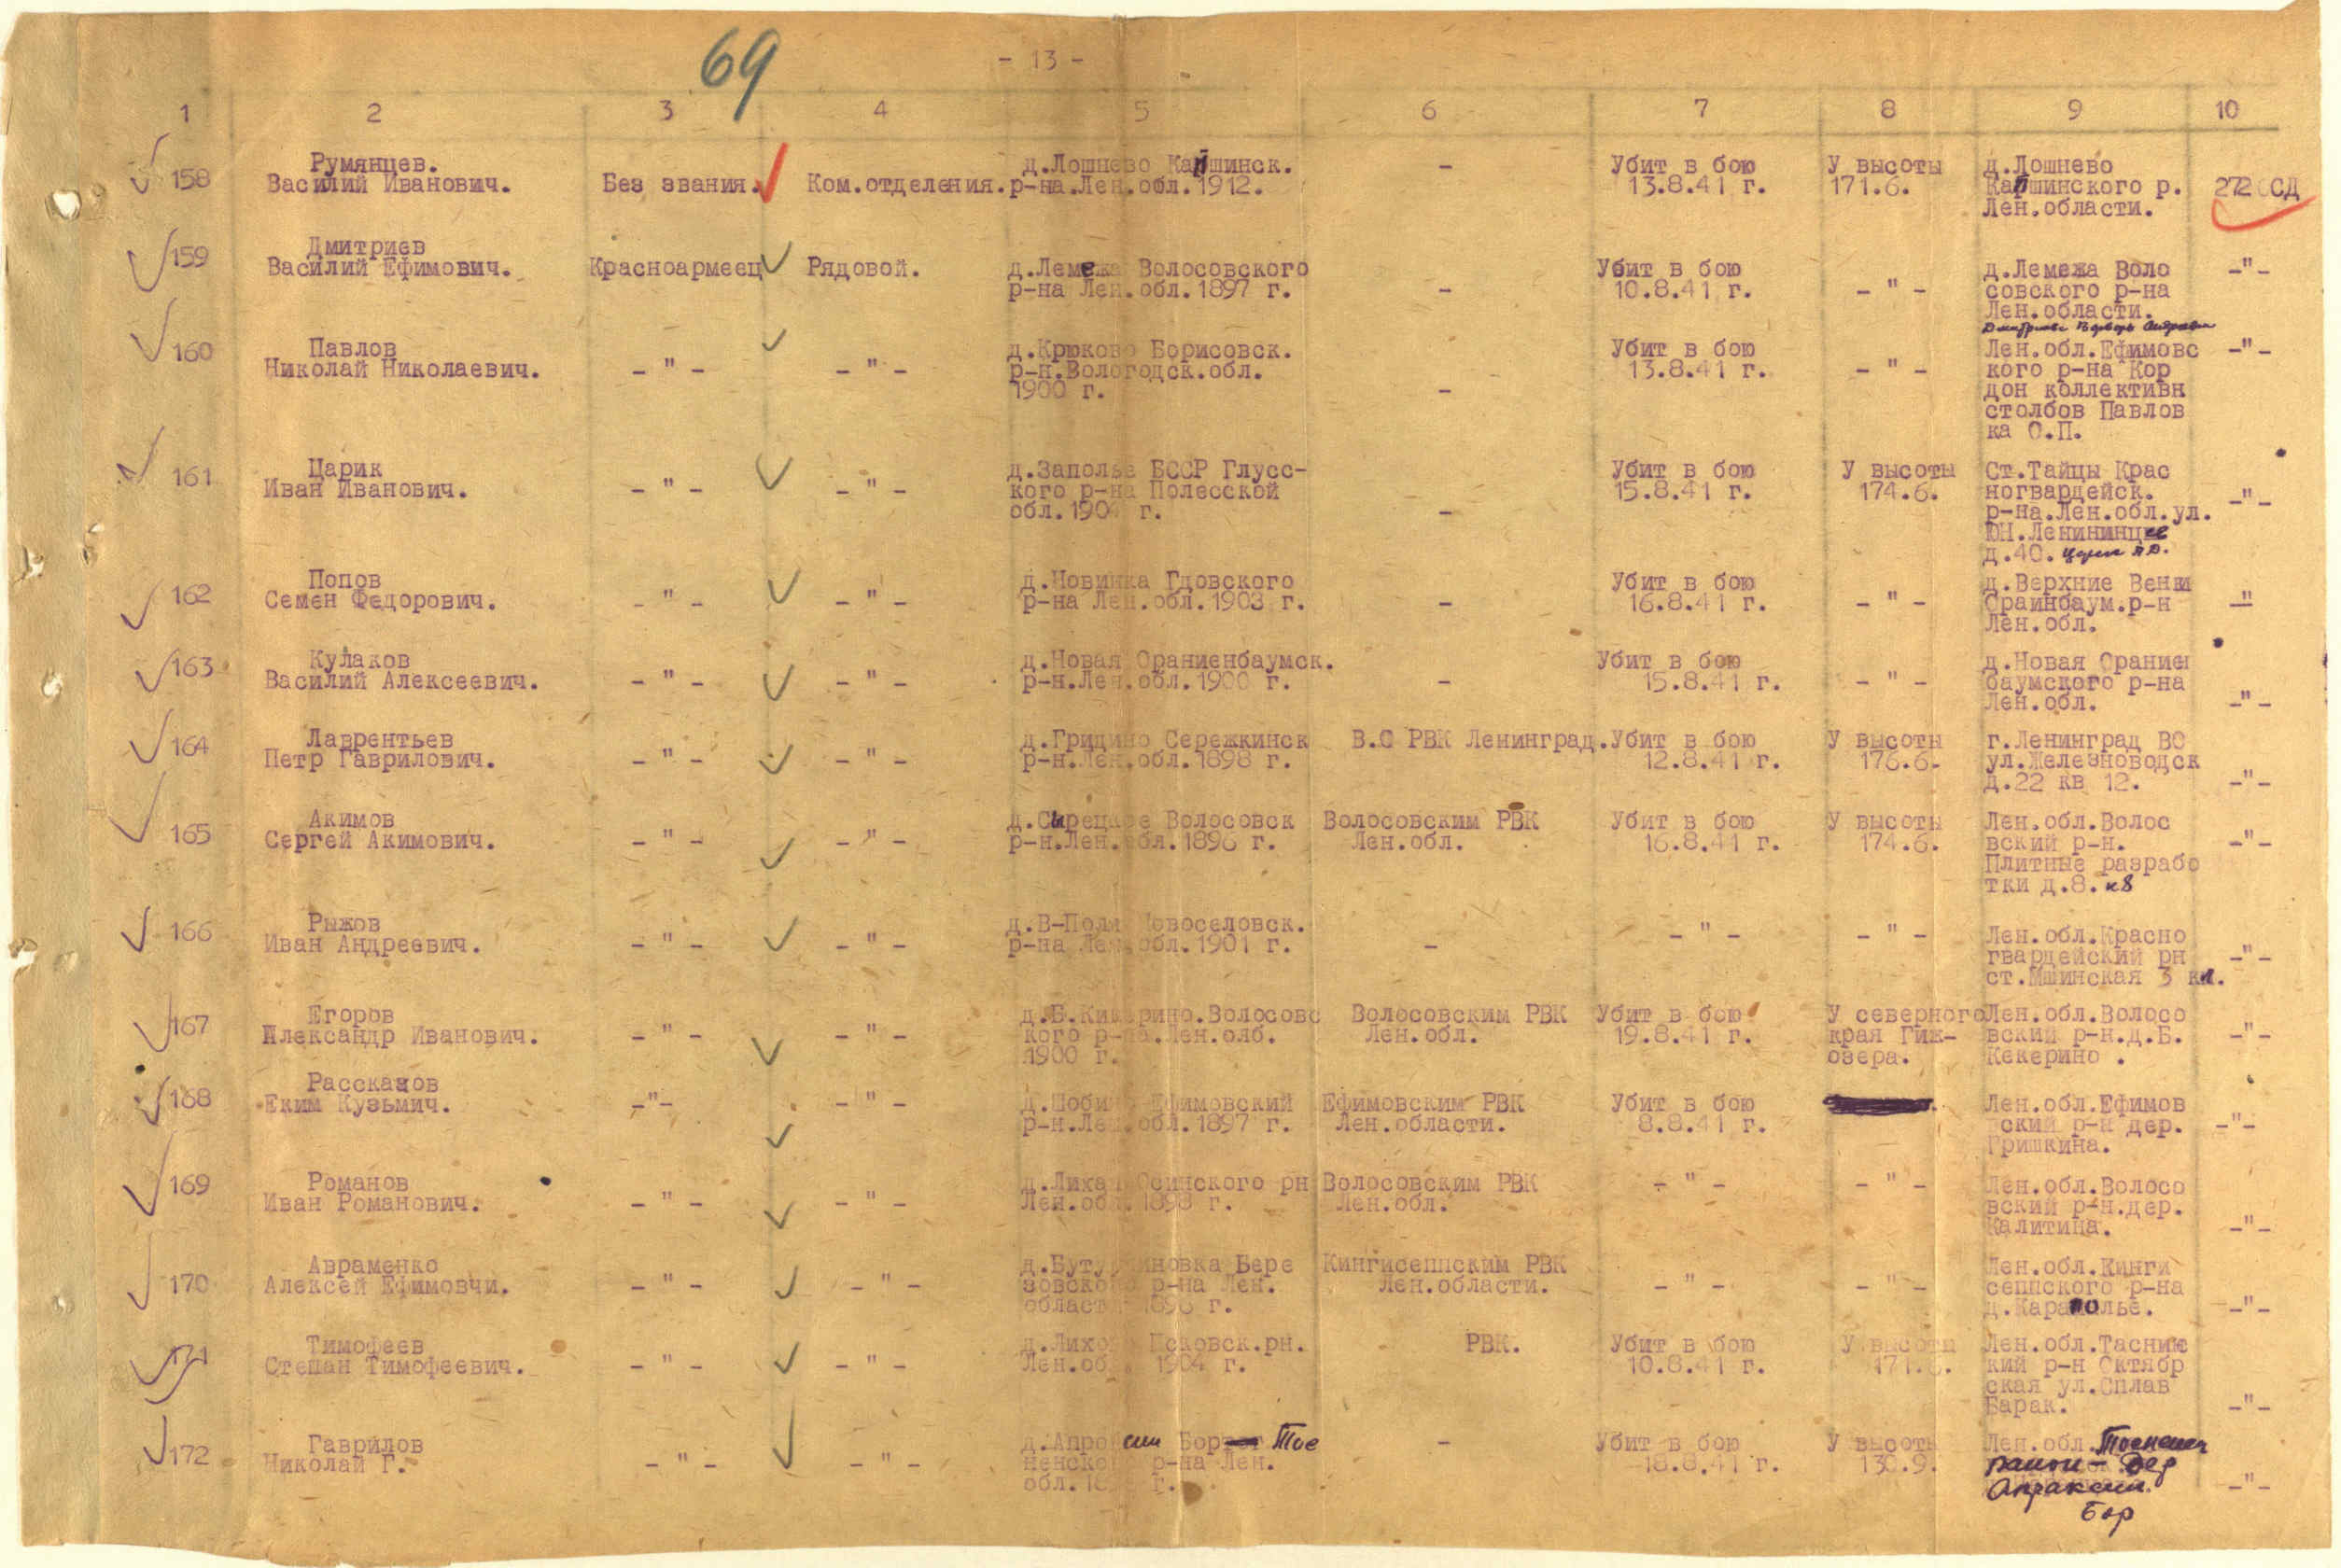 69
- 13 -
1 2 3 4 5 6 7 8 9 10
158 Румянцев. Василий Иванович. Без звания. Ком.отделения. д.Лошнево Капшинск. р-на.Лен.обл.1912. - Убит в бою 13.8.41 г. У высоты 171.6. д.Лошнево Капшинского р. Лен.области. 272 ССД
159 Дмитриев Василий Ефимович. Красноармеец Рядовой. д.Лемежа Волосовского р-на Лен.обл.1897 г. - Убит в бою 10.8.41 г. - " - д.Лемежа Воло совского р-на Лен.области. -"-
160 Павлов Николай Николаевич. - " - - " - д.Крюково Борисовск. р-н.Вологодск.обл. 1900 г. - Убит в бою 13.8.41 г. - " - Лен.обл.Ефимовс кого р-на Кор дон коллективн столбов Павлов ка О.П. -"-
161 Царик Иван Иванович. - " - - " - д.Заполье БССР Глусс- кого р-на Полесской обл. г. - Убит в бою 15.8.41 г. У высоты 174.6. Ст.Тайцы Крас ногвардейск. р-на.Лен.обл.ул. ЮН.Ленининцев д.40. -"-
162 Попов Семен Федорович. - " - - " - д.Новинка Гдовского р-на Лен.обл.1903 г. - Убит в бою 16.8.41 г. - " - д.Верхние Венки Ораинбаум.р-н Лен.обл. -"-
163 Кулаков Василий Алексеевич. - " - - " - д.Новая Ораниенбаумск. р-н.Лен.обл.1900 г. - Убит в бою 15.8.41 г. - " - д.Новая Ораниен баумского р-на Лен.обл. -"-
164 Лаврентьев Петр Гаврилович. - " - - " - д.Гридино Сережкинск р-н.Лен.обл.1898 г. В.О РВК Ленинград. Убит в бою 12.8.41 г. У высоты 176.6. г.Ленинград ВО ул.Железноводск д.22 кв 12. -"-
165 Акимов Сергей Акимович. - " - - " - д.Сырецкое Волосовск р-н.Лен.обл.1896 г. Волосовским РВК Лен.обл. Убит в бою 16.8.41 г. У высоты 174.6. Лен.обл.Волос вский р-н. Плитные разрабо тки д.8. к8 -"-
166 Рыжов Иван Андреевич. - " - - " - д.В-Поля Новоселовск. р-на Лен.обл.1901 г. - - " - - " - Лен.обл.Красно гвардейский рн ст.Мшинская 3 кл. -"-
167 Егоров Александр Иванович. - " - - " - д.Б.Кикерино.Волосовс кого р-на.Лен.олб. 1900 г. Волосовским РВК Лен.обл. Убит в бою 19.8.41 г. У северного края Гик- озера. Лен.обл.Волосо вский р-н.д.Б. Кекерино . -"-
168 Рассказов Еким Кузьмич. -"- - " - д.Шобино Ефимовский р-н.Лен.обл.1897 г. Ефимовским РВК Лен.области. Убит в бою 8.8.41 г. Лен.обл.Ефимов ский р-н дер. Гришкина. -"-
169 Романов Иван Романович. - " - - " - Осинского рн Лен.обл. 1898 г. Волосовским РВК Лен.обл. - " - - " - Лен.обл.Волосо вский р-н.дер. Калитина. -"-
170 Авраменко Алексей Ефимовчи. - " - - " - д.Бутурлиновка Бере зовского р-на Лен. области 1896 г. Кингисеппским РВК Лен.области. - " - - " - Лен.обл.Кинги сеппского р-на д.Караполье. -"-
171 Тимофеев Степан Тимофеевич. - " - - " - Псковск.рн. Лен.обл. 1904 г. РВК. Убит в бою 10.8.41 г. У высоты 171.6. Лен.обл.Таснин кий р-н Октябр ская ул.Сплав Барак. -"-
172 Гаврилов Николай Г. - " - - " - д.Апро син Бор Тос ненского р-на Лен. обл. г. - Убит в бою 18.8.41 г. У высоты 130.9. Лен.обл. Тосненск район - Дер Апраксин Бор -"-